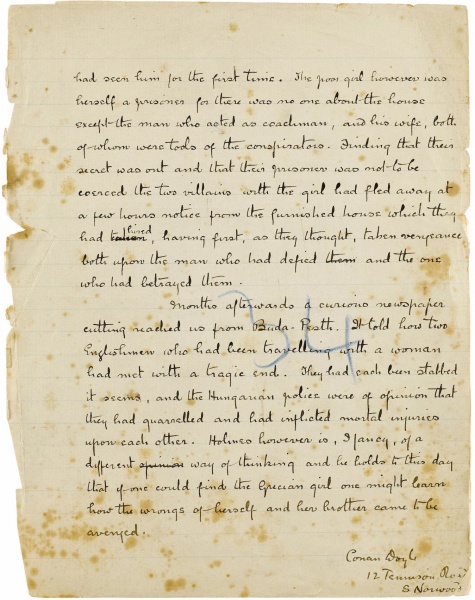 had seen him for the first time. The poor girl however was
herself a prisoner for there was no one about the house
except the man who acted as coachman, and his wife, both
of whom were tools of the conspirators. Finding that their
secret was out and that their prisoner was not to be
coerced the two villains with the girl had fled away at
a few hours notice from the furnished house which they
had taken hired, having first, as they thought, taken vengeance
both upon the man who had defied them and the one
who had betrayed them.
Months afterwards a curious newspaper
cutting reached us from Buda-Pesth. It told how two
Englishmen who had been travelling with a woman
had met with a tragic end. They had each been stabbed
it seems, and the Hungarian police were of opinion that
they had quarrelled and had inflicted mortal injuries
upon each other. Holmes however is, I fancy, of a
different opinion way of thinking and he holds to this day
that if one could find the Grecian girl one might learn
how the wrongs of herself and her brother came to be
avenged.
34
Conan Doyle
12 Tennison Road
S Norwood